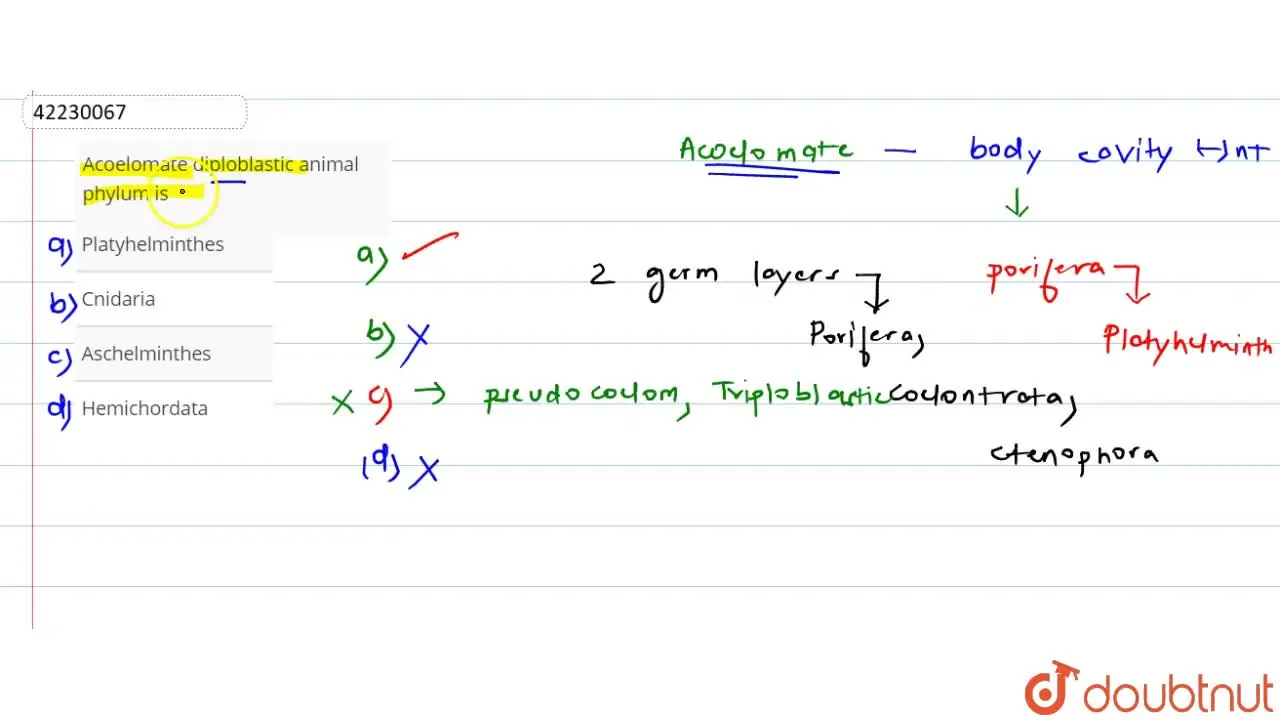 42230067
Acoelomate diploblastic animal
phylum is
a) Platyhelminthes
b) Cnidaria
c) Aschelminthes
d) Hemichordata
Acoelomate — body cavity
2 germ layers
Porifera,
coelontrata,
ctenophora
porifera
Platyhelminth
a)
b) X
X c) → pseudocoelom, Triploblastic
(d) X
doubtnut